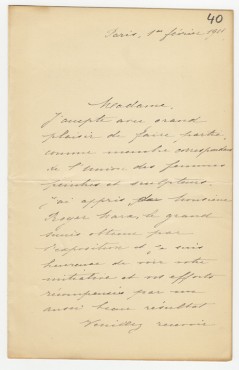 40
Paris, 1er février 1911
Madame,
J'accepte avec grand
plaisir de faire partie
comme membre correspondant
de l'Union des femmes
peintres et sculpteurs.
J'ai appris par Monsieur
Roger Marx le grand
succès obtenu par
l'exposition et je suis
heureuse de voir votre
initiative et vos efforts
récompensés par un
aussi beau résultat
Veuillez recevoir